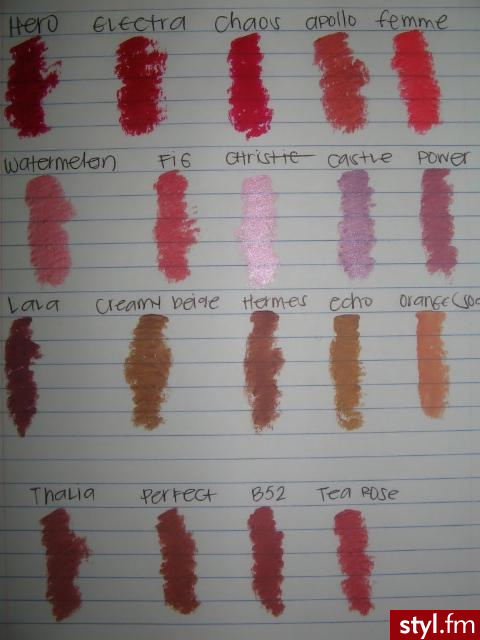 Hero Electra Chaos apollo femme
Watermelon Fig christie castle Power
Lava Creamy beige Hermes echo orange
Thalia Perfect B52 Tea Rose
styl.fm